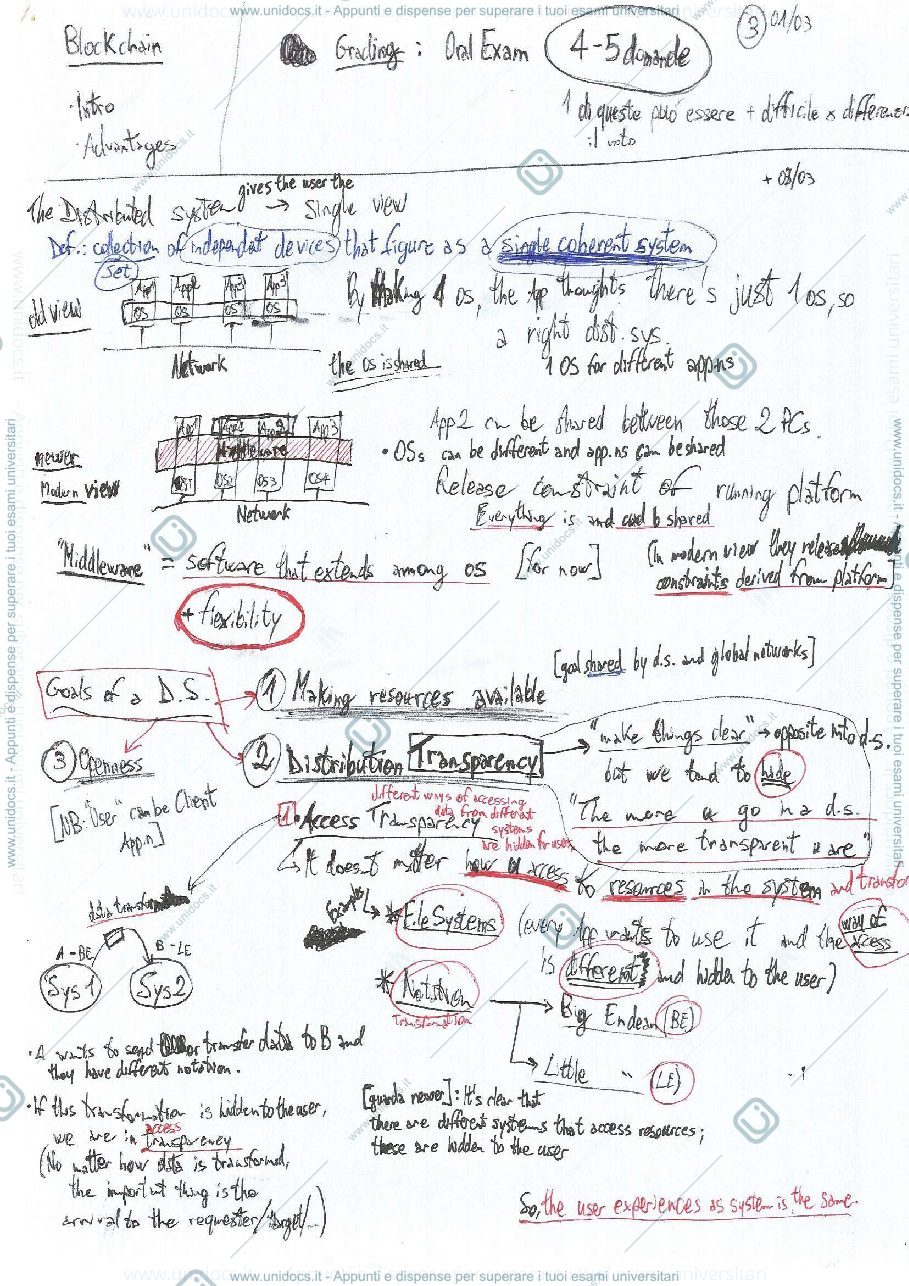 www.unidocs.it - Appunti e dispense per superare i tuoi esami universitari
1.
Blockchain
Grading: Oral Exam 4-5 domande
3 01/03
·Intro
·Advantages
1 di queste può essere + difficile x differenziare
il voto
+ 08/03
The Distributed system gives the user the → single view
Def.: collection of independent devices that figure as a single coherent system
(set)
old view
App1 App2 App3 App3
OS OS OS OS
Network
By Making 1 OS, the App thoughts there's just 1 OS, so
a right dist. sys.
the OS is shared
1 OS for different app.ns
newer
Modern view
App1 App2 App2 App3
Middleware
OS1 OS2 OS3 OS4
Network
App2 can be shared between those 2 PCs.
• OSs can be different and app.ns can be shared
Release constraint of running platform
Everything is and b shared
"Middleware" = software that extends among OS [for now]
[In modern view they release
constraints derived from platform]
+ flexibility
[goal shared by d.s. and global networks]
Goals of a D.S.
1 Making resources available
2 Distribution Transparency
"make things clear" → opposite into d.s.
but we tend to hide
"The more u go in a d.s.
the more transparent u are"
3 Openness
[NB: "User" can be Client
App.n]
1. Access Transparency
different ways of accessing
data from different
systems
are hidden for user
↳ It doesn't matter how u access to resources in the system and transfer
data transformation
A - BE B - LE
Sys1 Sys2
Examples
* File Systems (every App wants to use it and the way of access
is different and hidden to the user)
* Notation
Transformation
Big Endean (BE)
Little " (LE)
· A wants to send or transfer data to B and
they have different notation.
· If this transformation is hidden to the user,
we are in access transparency
(No matter how data is transformed,
the important thing is the
arrival to the requester/target/...)
[guarda newer]: It's clear that
there are different systems that access resources;
these are hidden to the user
So, the user experiences as system is the same.
www.unidocs.it - Appunti e dispense per superare i tuoi esami universitari